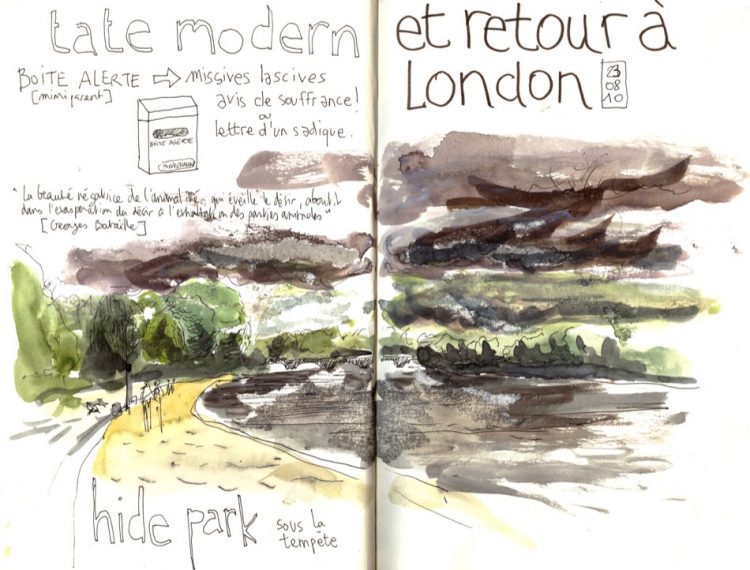 tate modern
et retour à
London
23
08
10
BOITE ALERTE ⇨ missives lascives
[mimi parent]
avis de souffrance!
ou
lettre d'un sadique.
BOITE ALERTE
"La beauté négatrice de l'animalité, qui éveille le désir, aboutit
dans l'exaspération du désir à l'exaltation des parties animales"
[Georges Bataille]
hide park
sous la
tempête